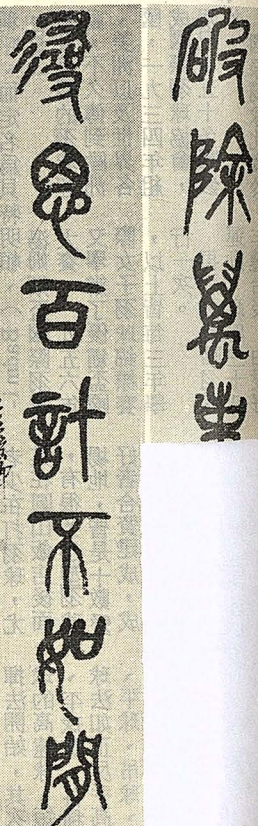 破除萬事
尋思百計不如閒